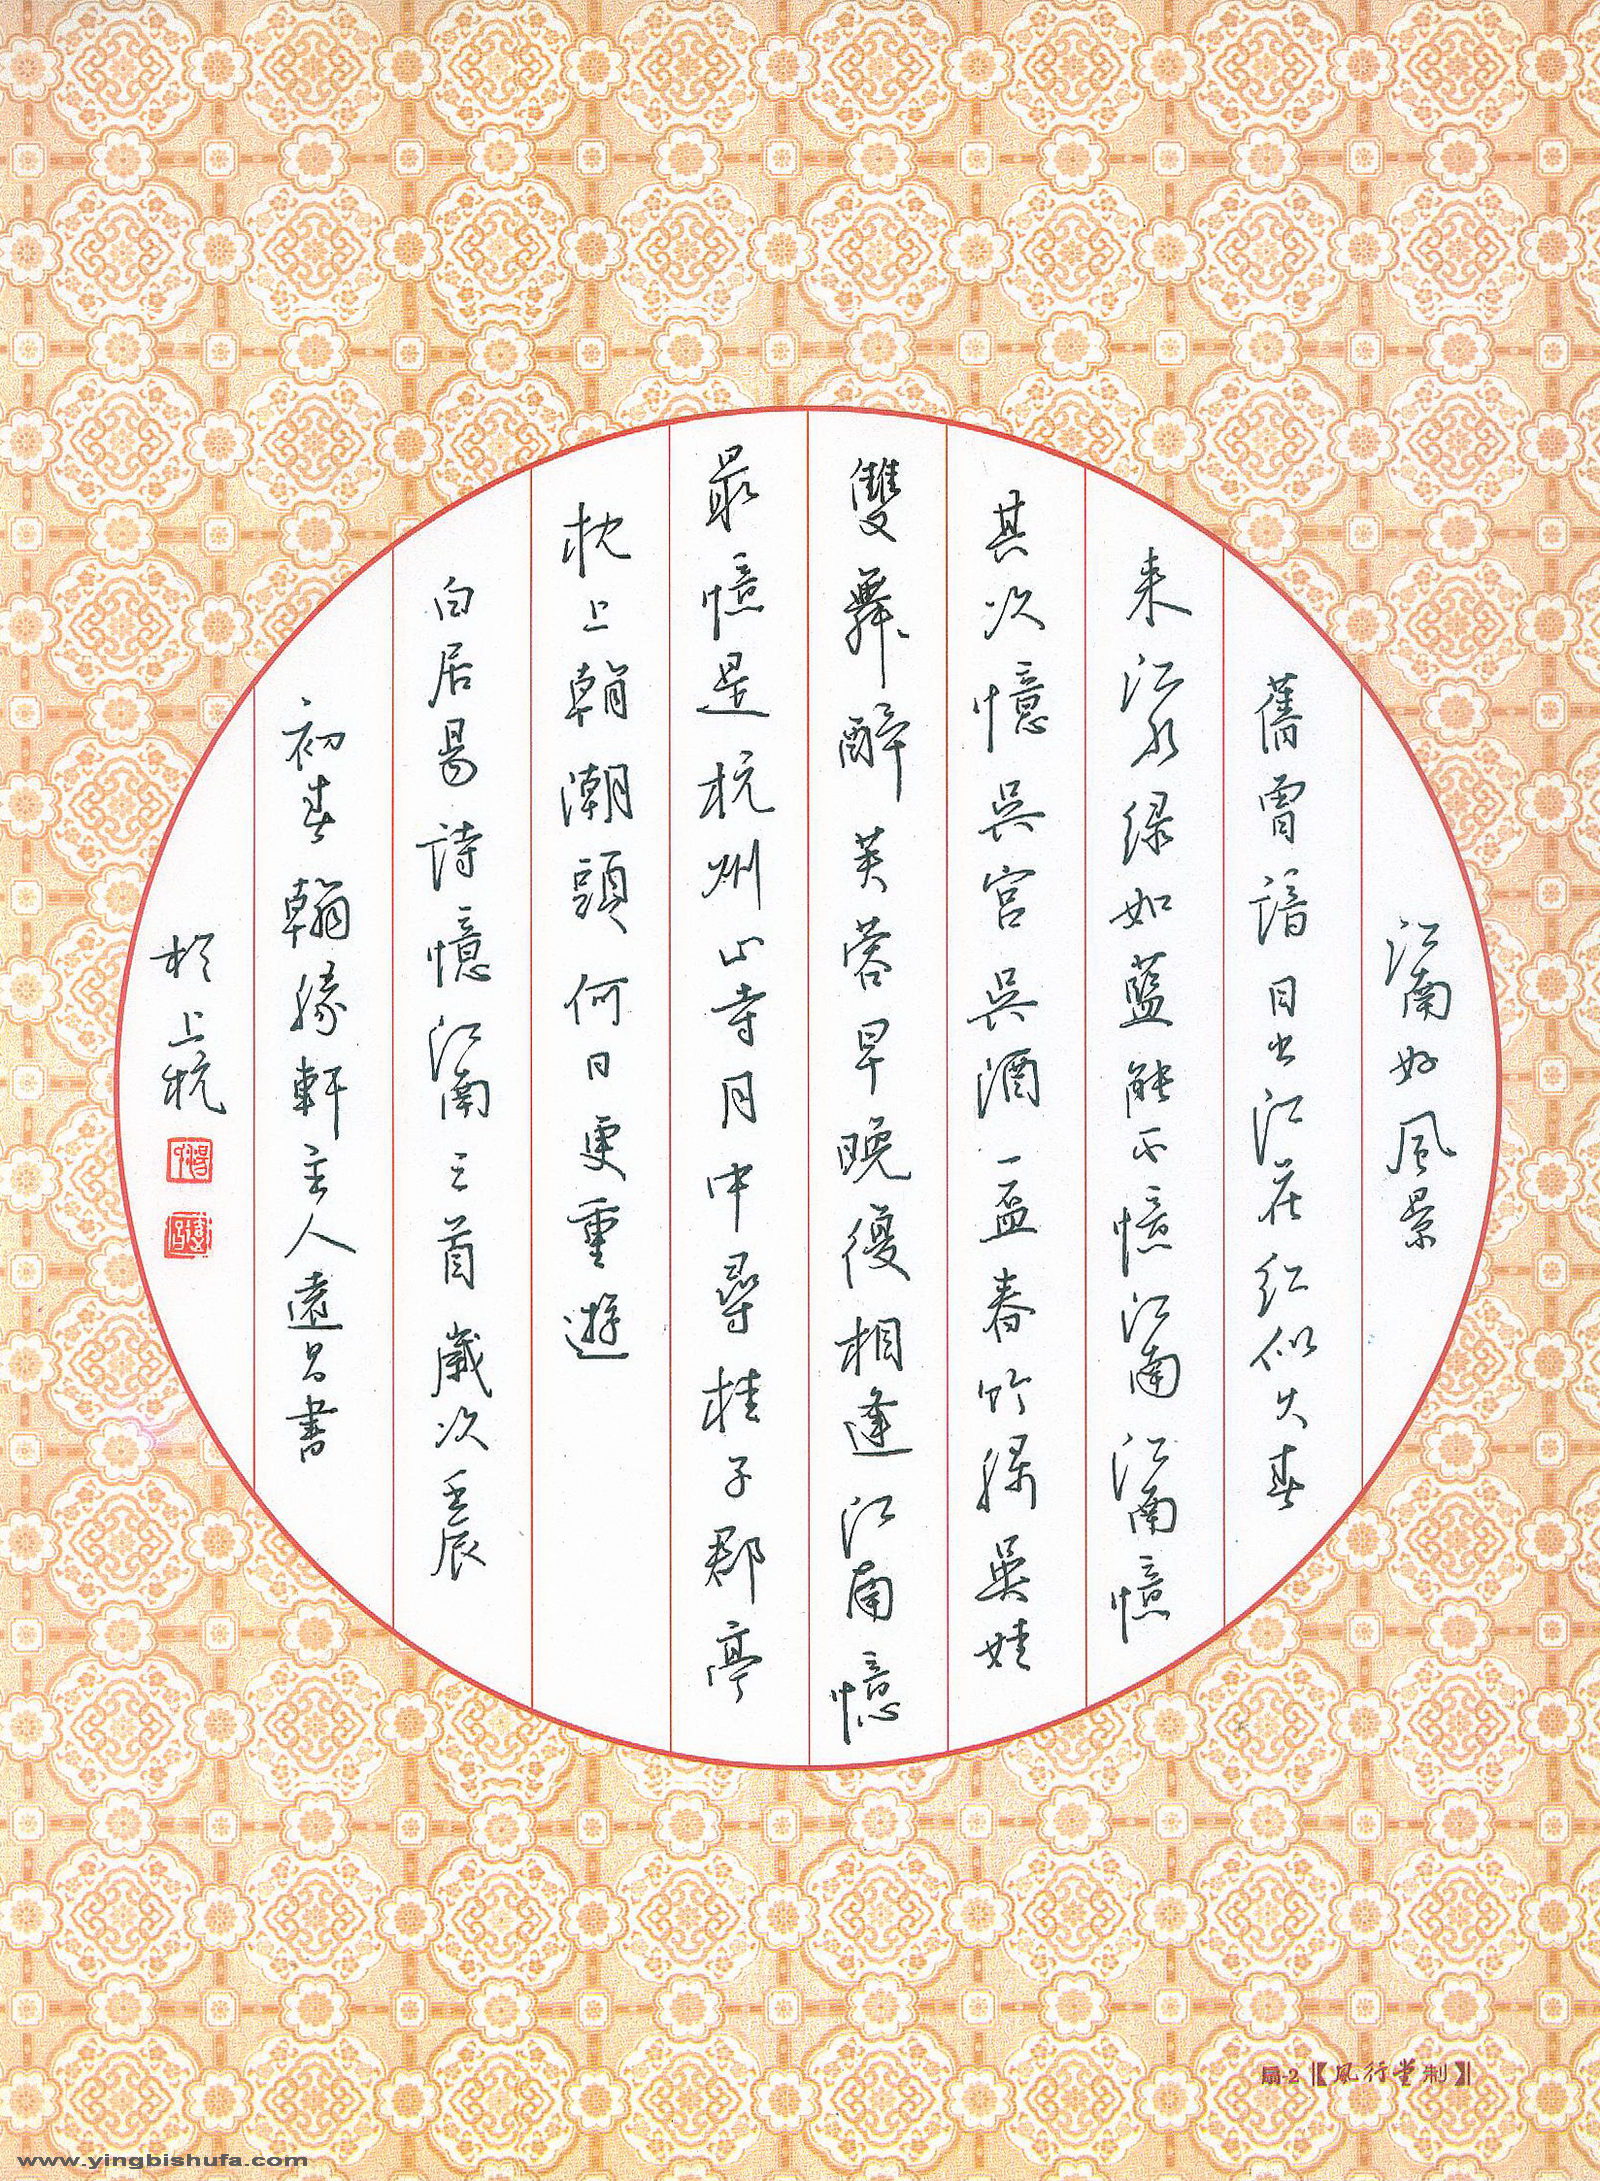 江南好風景
舊曾諳日出江花红似火春
来江水绿如藍能不憶江南江南憶
其次憶吳宮吳酒一盃春竹葉吳娃
雙舞醉芙蓉早晚復相逢江南憶
最憶是杭州山寺月中尋桂子郡亭
枕上朝潮頭何日更重遊
白居易詩憶江南三首歲次壬辰
初春翰緣軒主人遠昌書
於上杭
扇-2【風行堂制】
www.yingbishufa.com